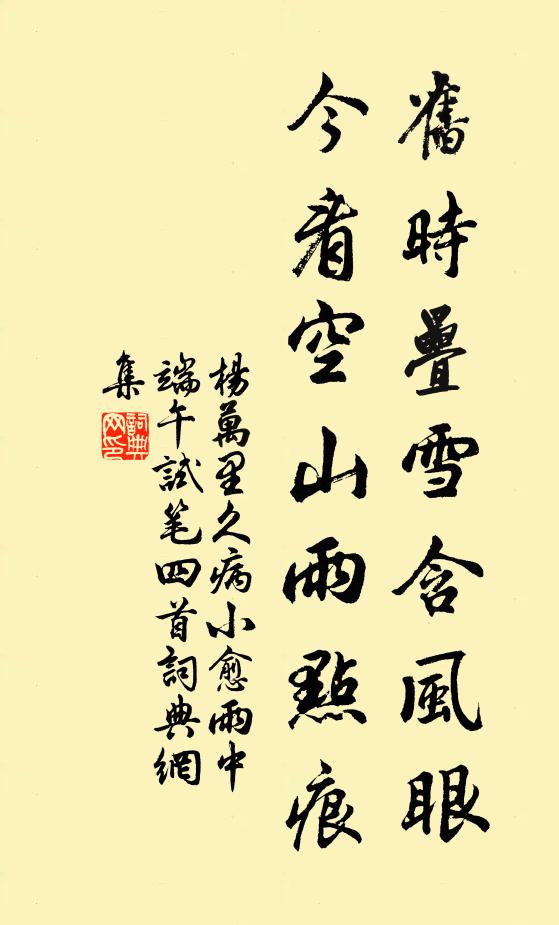 舊時疊雪含風眼
今看空山雨點痕
楊萬里久病小愈雨中
端午試笔四首詞典網
集
詞典
网印